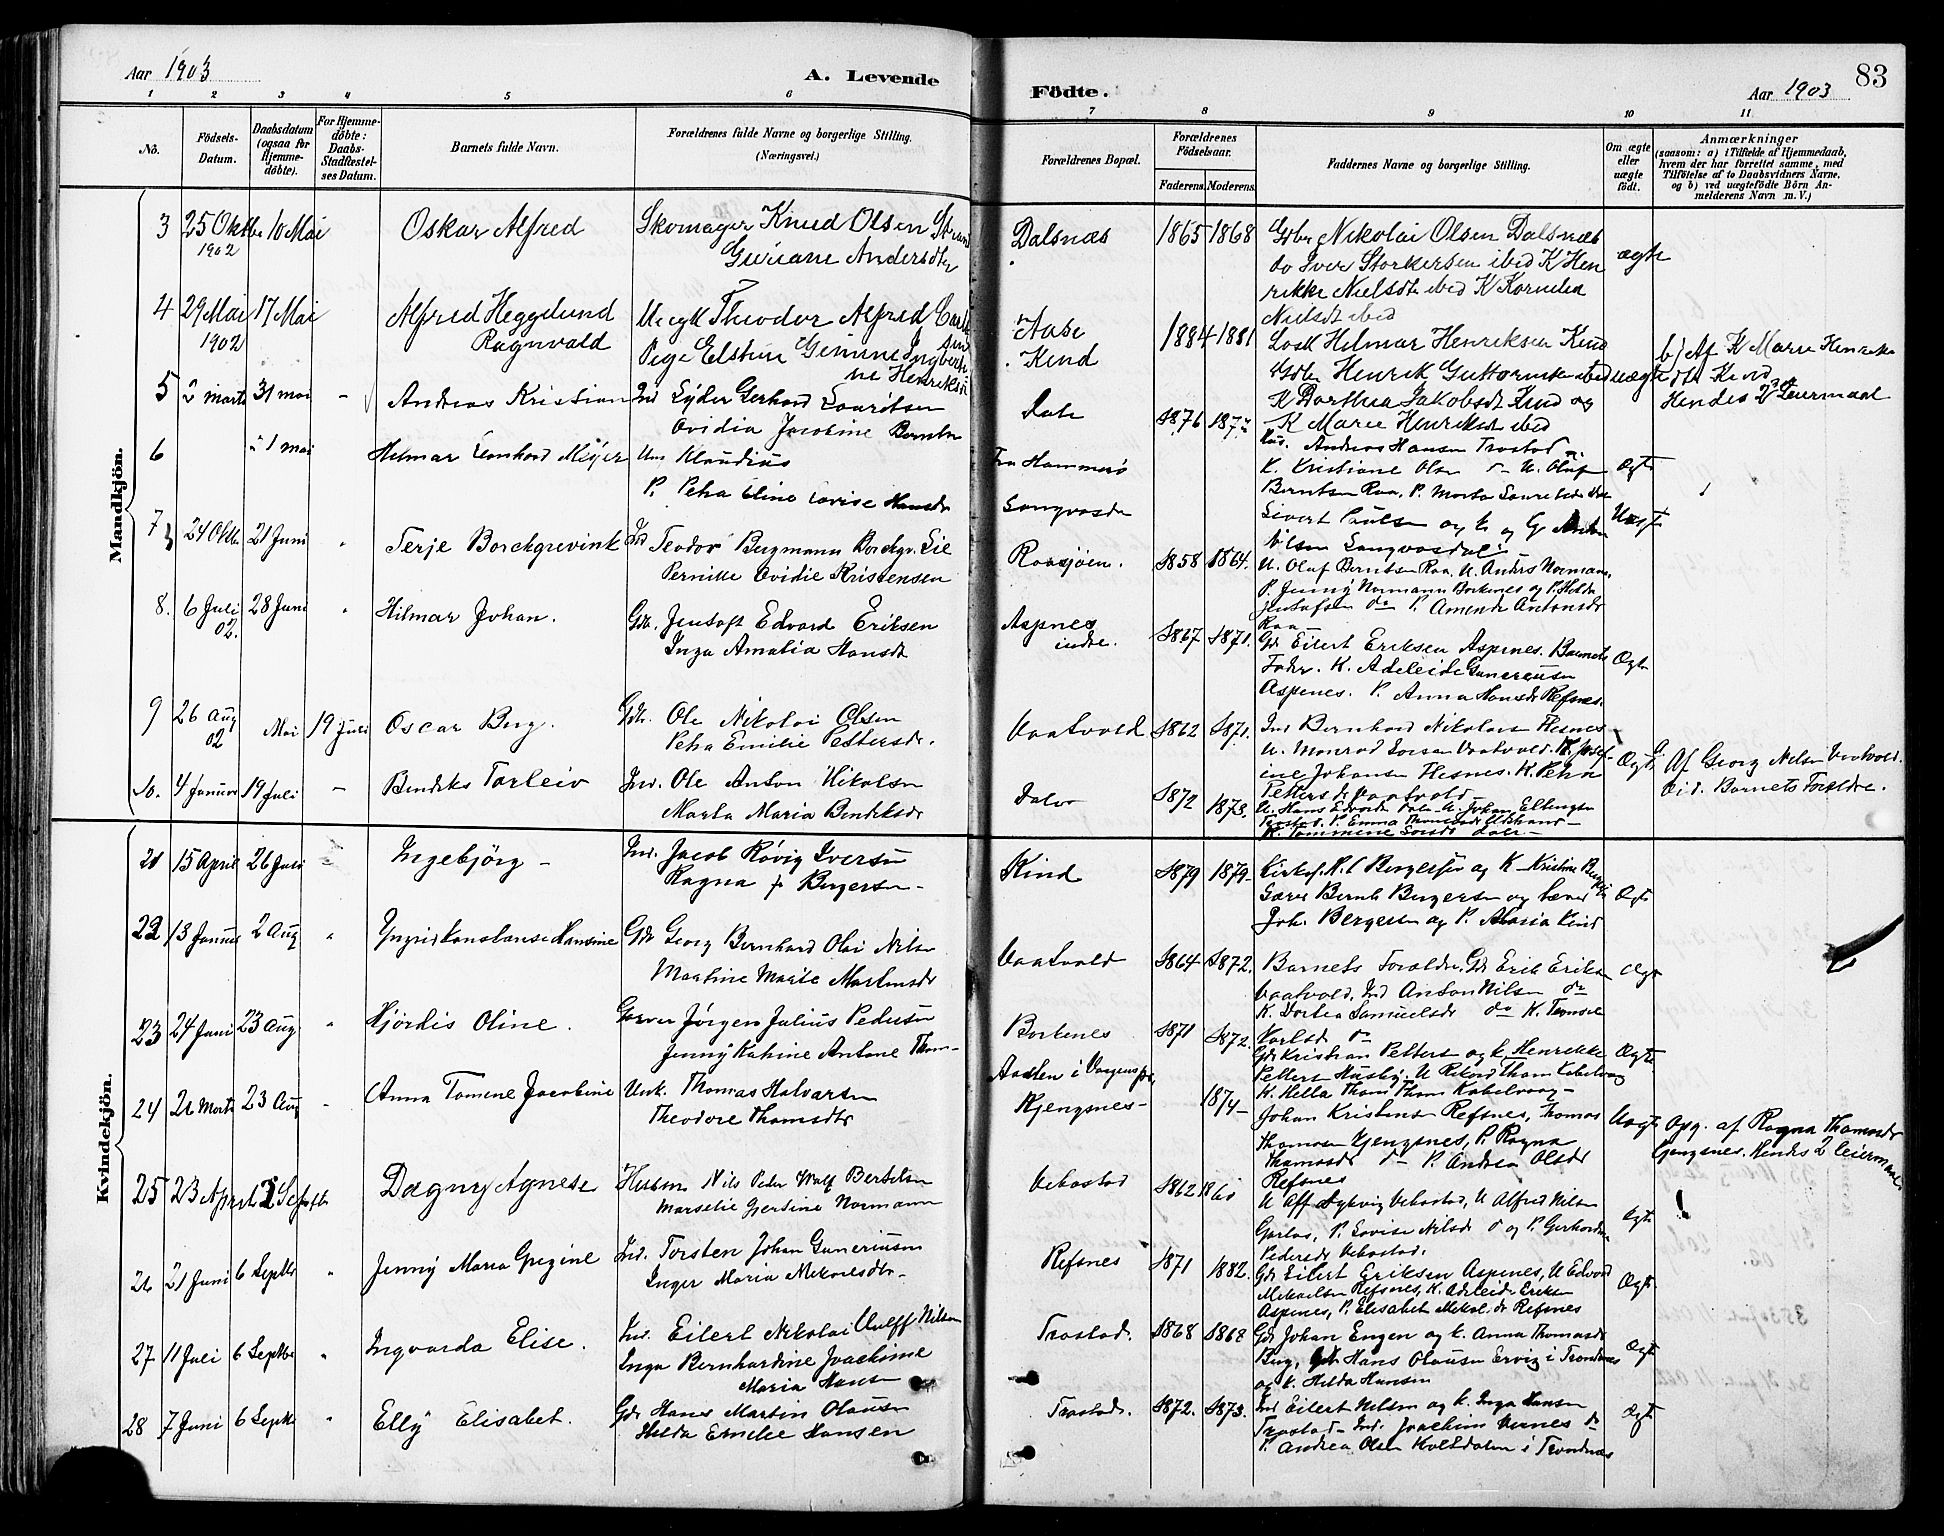 Aar 1903
A. Levende
Födte.
Aar 1903
83
1 2 3 4 5 6 7 8 9 10 11
Nô.
Födsels-
Datum.
Daabsdatum
(ogsaa for
Hjemme-
döbte).
For Hjemme-
döbte:
Daabs-
Stadfæstel-
ses Datum.
Barnets fulde Navn.
Forældrenes fulde Navne og borgerlige Stilling.
(Næringsvei.)
Forældrenes Bopæl.
Forældrenes
Födselsaar.
Faderens. Moderens.
Faddernes Navne og borgerlige Stilling.
Om ægte
eller
uægte
født.
Anmærkninger
(saasom: a) i Tilfælde af Hjemmedaab,
hvem der har forrettet samme, med
Tilföielse af to Daabsvidners Navne,
og b) ved uægtefödte Börn An-
melderens Navn m. V.)
Mandkjön.
3 25 Oktbr 10 Mai Oskar Alfred Skomager Knud Olsen Strand
1902 Guriane Andersdtr
Dalsnæs 1865 1868 Gbr Nikolai Olsen Dalsnæs
do Iver Storkersen ibid K Hen
rikke Nielsdtr ibid K Kornelia
Nielsdt ibid
ægte
4 29 Mai 17 Mai Alfred Heggelund Ungk Theodor Alfred
1902 Ragnvald Pige Elstine Gemine
Aabe
Kind
1884 1881 Losk Hilmar Henriksen Kind
Gbr Henrik Guttormsen ibid
K Dorthea Jakobsdt Kind og
K Marie Henriksdt ibid
uægte
b) Af K Marie Henriks
dtr Kind
Hendes 2det Leiermaal
5 2 marts 31 mai - Andreas Kristian Ind Lyder Gerhard Lauritsen
Ovidia Jacobine Berntsn
Dale 1876 187 Andreas Hansen Trastad
K. Kristiane Olsen do U. Oluf
Berntsen Raa, P. Marta
Ægte
6 1 mai Hilmar Leonhard Meyer Um Klaudius
P. Petra Eline Lovise Hansdr
Fra Hammerö
Langvasda
Sivert Paulsen og k og G
Nilsen Langvasdal
Uægt
7 24 Oktb 21 Juni " Terje Borchgrevink Ind Teodor Bergmann Borchgr. Lie
Pernille Ovidie Kristensen
Raasjøen. 1858 1864. U. Oluf Berntsen Raa, U. Anders Normann,
P. Jenny Normann Borkenes og P. Helda
Justafsen do P. Amanda Antonsdr
Raa
8. 6 Juli 28 Juni " Hilmar Johan. Gdr. Jentoft Edvard Eriksen
02. Inga Amalia Hansdt
Aspnes
indre.
1867 1871. Gdr Eilert Eriksen Aspenes. Barnets
Fader. K. Adeleide Gunereusen
Aspenes. P. Anna Hansdr Refsnes.
Ægte
9 26 Aug Mai 19 Juli Oscar Berg. Gdr. Ole Nikolai Olsen
02 Petra Emilie Pettersdr.
Vaatvold 1862 1871. Ind Bernhard Nikolaisn Hesnes
U. Monrad Larsen Vaatvold. K. Josef-
ine Johansen Hesnes. K. Petra
Pettersdr Vaatvold
Ægte
Af Georg Nilsen Vaatvold.
Vid. Barnets Forældre.
10. 4 Januar 19 Juli - Bendiks Torleiv Ind. Ole Anton Nikolsen
Marta Maria Bendiksdr
Dale 1872 1873. U. Hans Edvardsen Dale U. Johan Ellingsen
Trastad. P. Emma Thomasdr
K. Tommine Larsdr Dale -
Kvindekjön.
21 15 April 26 Juli - Ingebjörg - Ind. Jacob Røvig Iversen
Ragna f. Bergersen -
Kind 1879 1879 Kirkes. H. C Bergersen og K Kristine
Garver Bernt Bergersen og Lærer
Joh. Bergersen og P. Maria Kind
Ægte
22 13 Januar 2 Aug " Yngrid Konstanse Hansine Gdr Georg Bernhard Olai Nilsn
Martine Marie Martensdr
Vaatvold 1864 1872. Barnets Forældre, Gdr Erik Eriksn
Vaatvold, Ind Anton Nilsen do
K. Dortea Samuelsdr do K. Tomine
Karlsdr do
Ægte
23 24 Juni 23 Aug " Hjördis Oline. Garver Jørgen Julius Pedersen
Jenny Katrine Antone Thom-
Borkenes 1871 1872. Gdr Kristian Petters og k. Henrikke
Petters Husby. U Rikard Tham Kabelvaag
K. Hella Tham Tham Kabelvaag -
Ægte
24 21 Marts 23 Aug - Anna Tomene Jacobine Unk. Thomas Halvarsen
Theodore Thomsdtr
Aasten i Vaagens
Kjengsnes - 1874 - Johan Kristensen Refsnes, Thomas
Thomasn Kjengsnes, P. Ragna
Thomasdr do P. Andrea Olsdr
Refsnes
Uægt Opg. af Ragna Thomasdr
Gjengsnes. Hendes 2 leiermaal
25 23 April 2 Septbr Dagny Agnese Husm Nils Peder Wulf Bertelsn
Marselie Gjertine Normann
Vebostad 1862 1861 U Alf Dykvig Vebostad, U Alfred Nilsn
Gartas, P. Lovise Nilsdr do og P. Gerharda
Pedersdr Vebostad.
Ægte
26 21 Juni 6 Septbr " Jenny Maria Gregine Ind. Torsten Johan Gunerius
Inger Maria Mekalsdtr -
Refsnes 1871 1882. Gdr Eilert Eriksen Aspenes, U Edvard
Mekalsen Refsnes, K. Adeleide Eriksen
Aspenes, P. Elisabet Mekal.dr Refsnes
Ægte
27 11 Juli 6 Septbr " Ingvarda Elise. Ind. Eilert Nikolai Wulff Nilsen
Inga Bernhardine Joachime
Maria Hansen
Trastad. 1868 1868 Gdr Johan Engen og k. Anna Thomasdr
Berg, Gdr Hans Olausen Ervig i Trondenes
og k. Helda Hansen
Ægte
28 7 Juni 6 Septbr " Elly Elisabet. Gdr Hans Martin Olausen
Helda Emelie Hansen
Trastad. 1872. 1873. Ind Eilert Nilsen og k. Inga Hansen
Trastad - Ind. Joachim Vernes do
P. Andrea Olsen Koltdalen i Trondnæs
Ægte